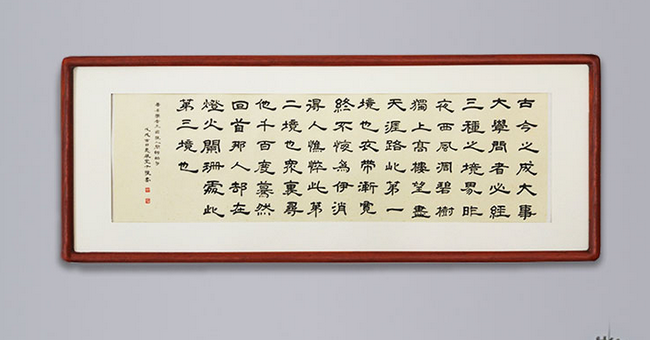 古今之成大事
大學問者必經
三種之境界昨
夜西風凋碧樹
獨上高樓望盡
天涯路此第一
境也衣帶漸寬
終不悔為伊消
得人憔悴此第
二境也眾裏尋
他千百度驀然
回首那人卻在
燈火闌珊處此
第三境也